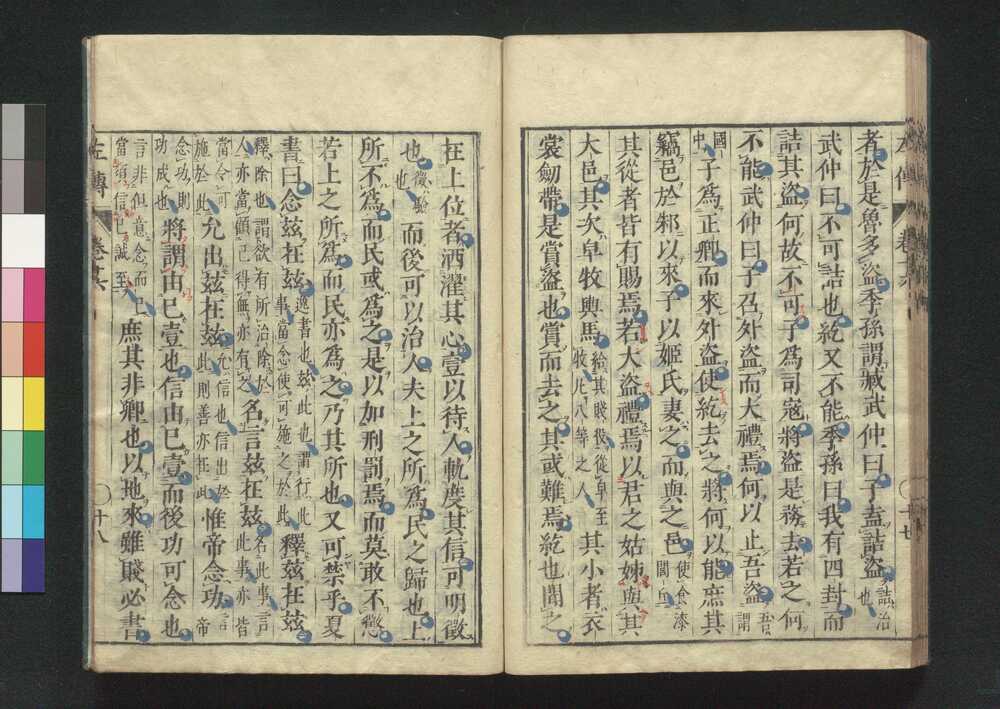 者於是魯多盜季孫謂臧武仲曰子盍詰盜詰治也
武仲曰不可詰也紇又不能季孫曰我有四封而
詰其盜何故不可子爲司寇將盜是務去若之何
不能武仲曰子召外盜而大禮焉何以止吾盜吾謂
國中子爲正卿而來外盜使紇去之將何以能庶其
竊邑於邾以來子以姬氏妻之而與之邑使食漆閭丘
其從者皆有賜焉若大盜禮焉以君之姑姊與其
大邑其次皁牧輿馬給其賤役從皁至牧凡八等之人其小者衣
裳劒帶是賞盜也賞而去之其或難焉紇也聞之
十七
在上位者洒濯其心壹以待人軌度其信可明徵
也徵驗也而後可以治人夫上之所爲民之歸也上
所不爲而民或爲之是以加刑罰焉而莫敢不懲
若上之所爲而民亦爲之乃其所也又可禁乎夏
書曰念玆在玆逸書也玆此也謂行此事當念使可施之於此釋玆在玆
釋除也謂欲有所治除於人亦當顧己得無亦有之名言玆在玆名此事言此事亦皆
當令可施於此允出玆在玆允信也信出於此則善亦在此惟帝念功言帝
念功則功成也將謂由已壹也信由已壹而後功可念也
言非但意念而已當須信已誠至庶其非卿也以地來雖賤必書
左傳 卷十六 十八